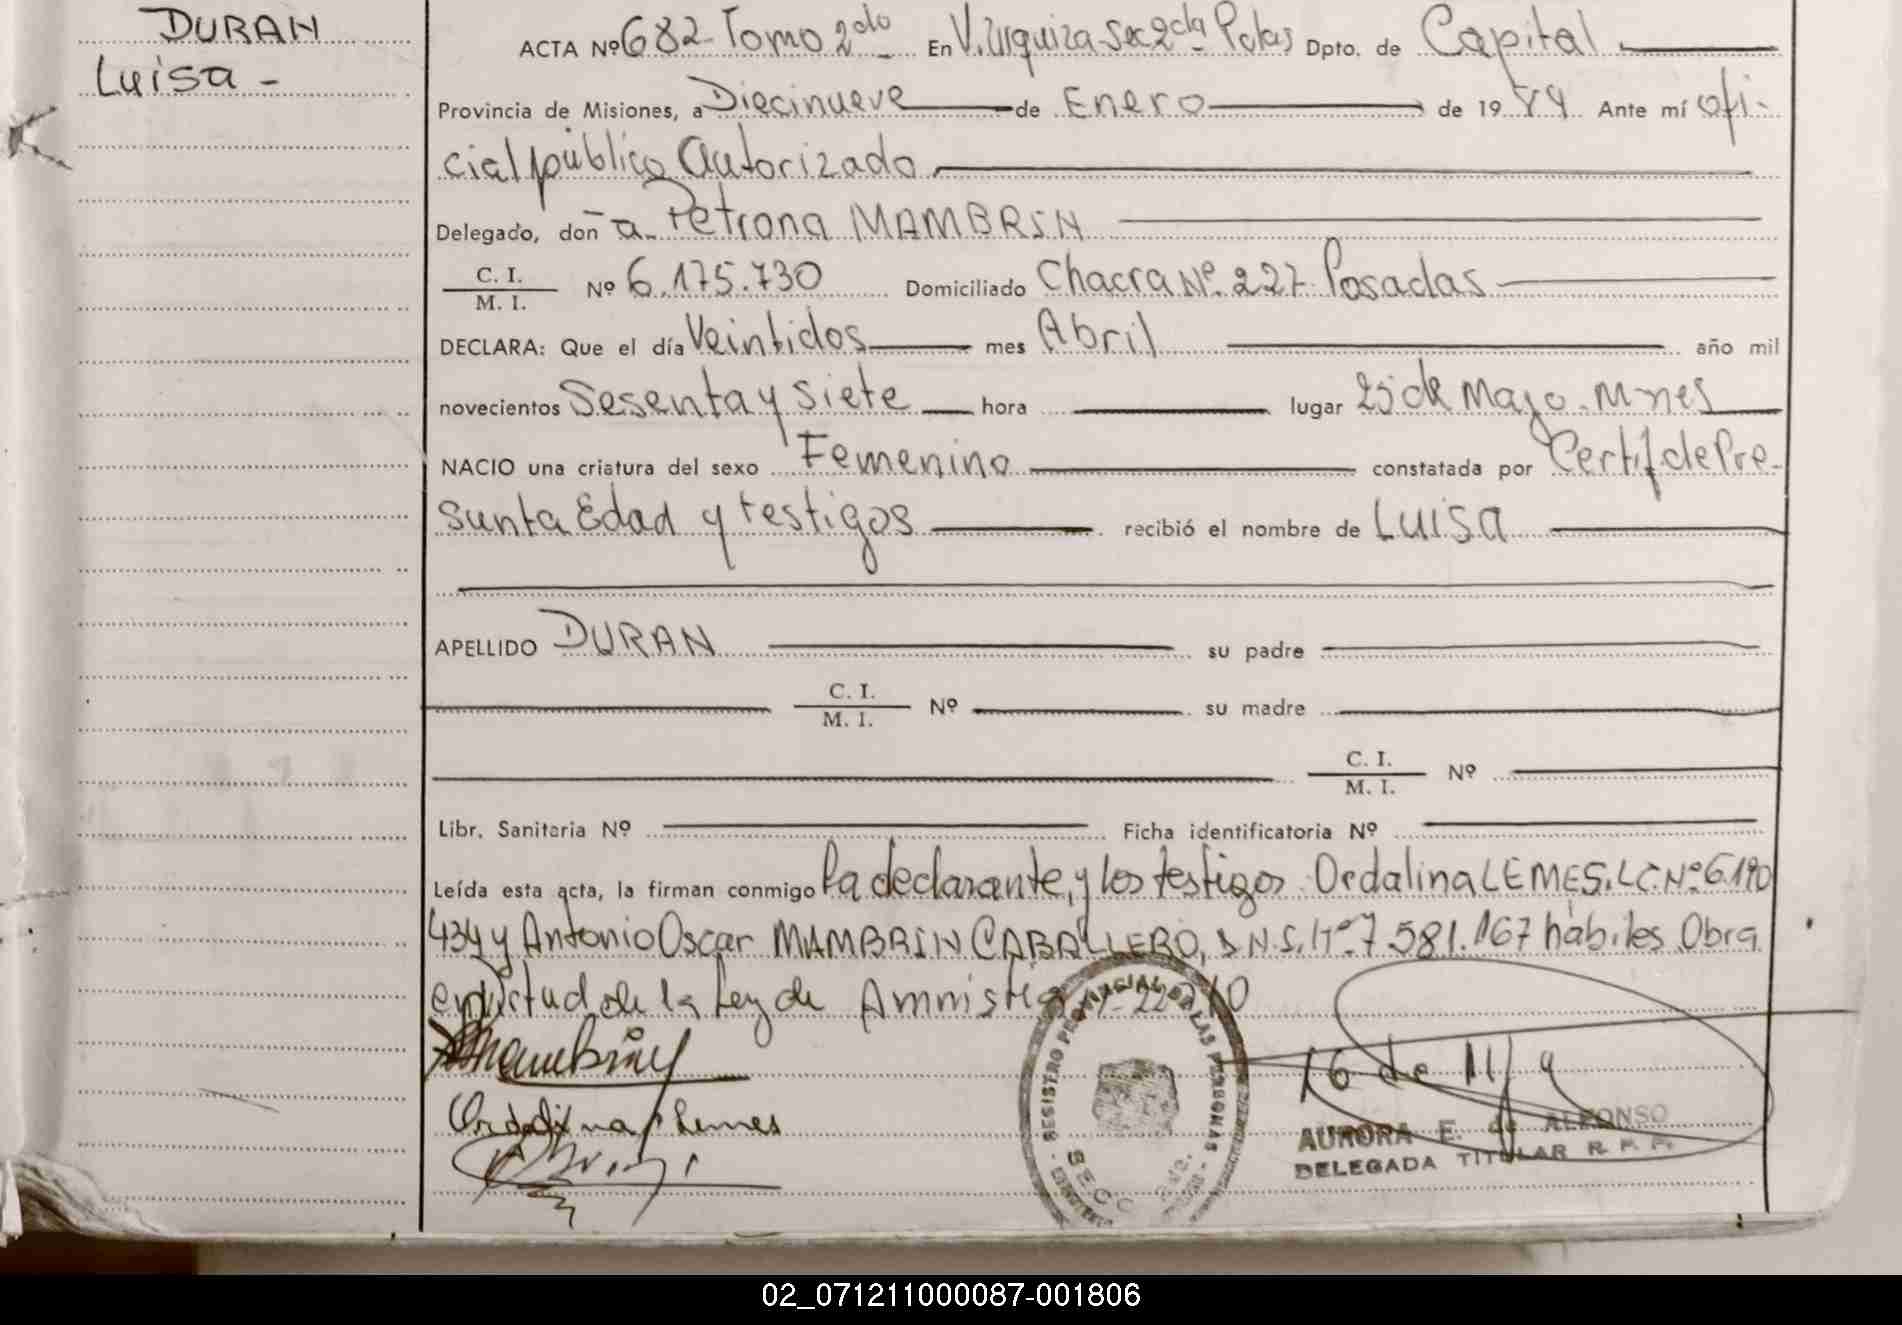 DURAN
Luisa -
ACTA Nº 682 - Tomo 2do En V. Urquiza Sec 2da Pdas Dpto. de Capital
Provincia de Misiones, a Diecinueve de Enero de 19 Ante mí ofi-
cial público Autorizado
Delegado, don ̃a. Petrona MAMBRIN
C. I.
M. I. Nº 6.175.730 Domiciliado Chacra Nº 227 - Posadas
DECLARA: Que el día Veintidos mes Abril año mil
novecientos Sesenta y Siete hora lugar 25 de Mayo. Mnes
NACIO una criatura del sexo Femenino constatada por Certif de Pre-
sunta Edad y testigos recibió el nombre de LUISA
APELLIDO DURAN su padre
C. I.
M. I. Nº su madre
C. I.
M. I. Nº
Libr. Sanitaria Nº Ficha identificatoria Nº
Leída esta acta, la firman conmigo la declarante, y los testigos Ordalina LEMES. L.C. Nº 6.190
434 y Antonio Oscar MAMBRIN CABALLERO, D.N.I. Nº 7.581.167 hábiles Obra
en virtud de la Ley de Amnistía
Mambrin
Ordalina Lemes
REGISTRO PROVINCIAL DE LAS PERSONAS
SECC
16 de
AURORA E. de ALFONSO
DELEGADA TITULAR R. P. P.
02_071211000087-001806